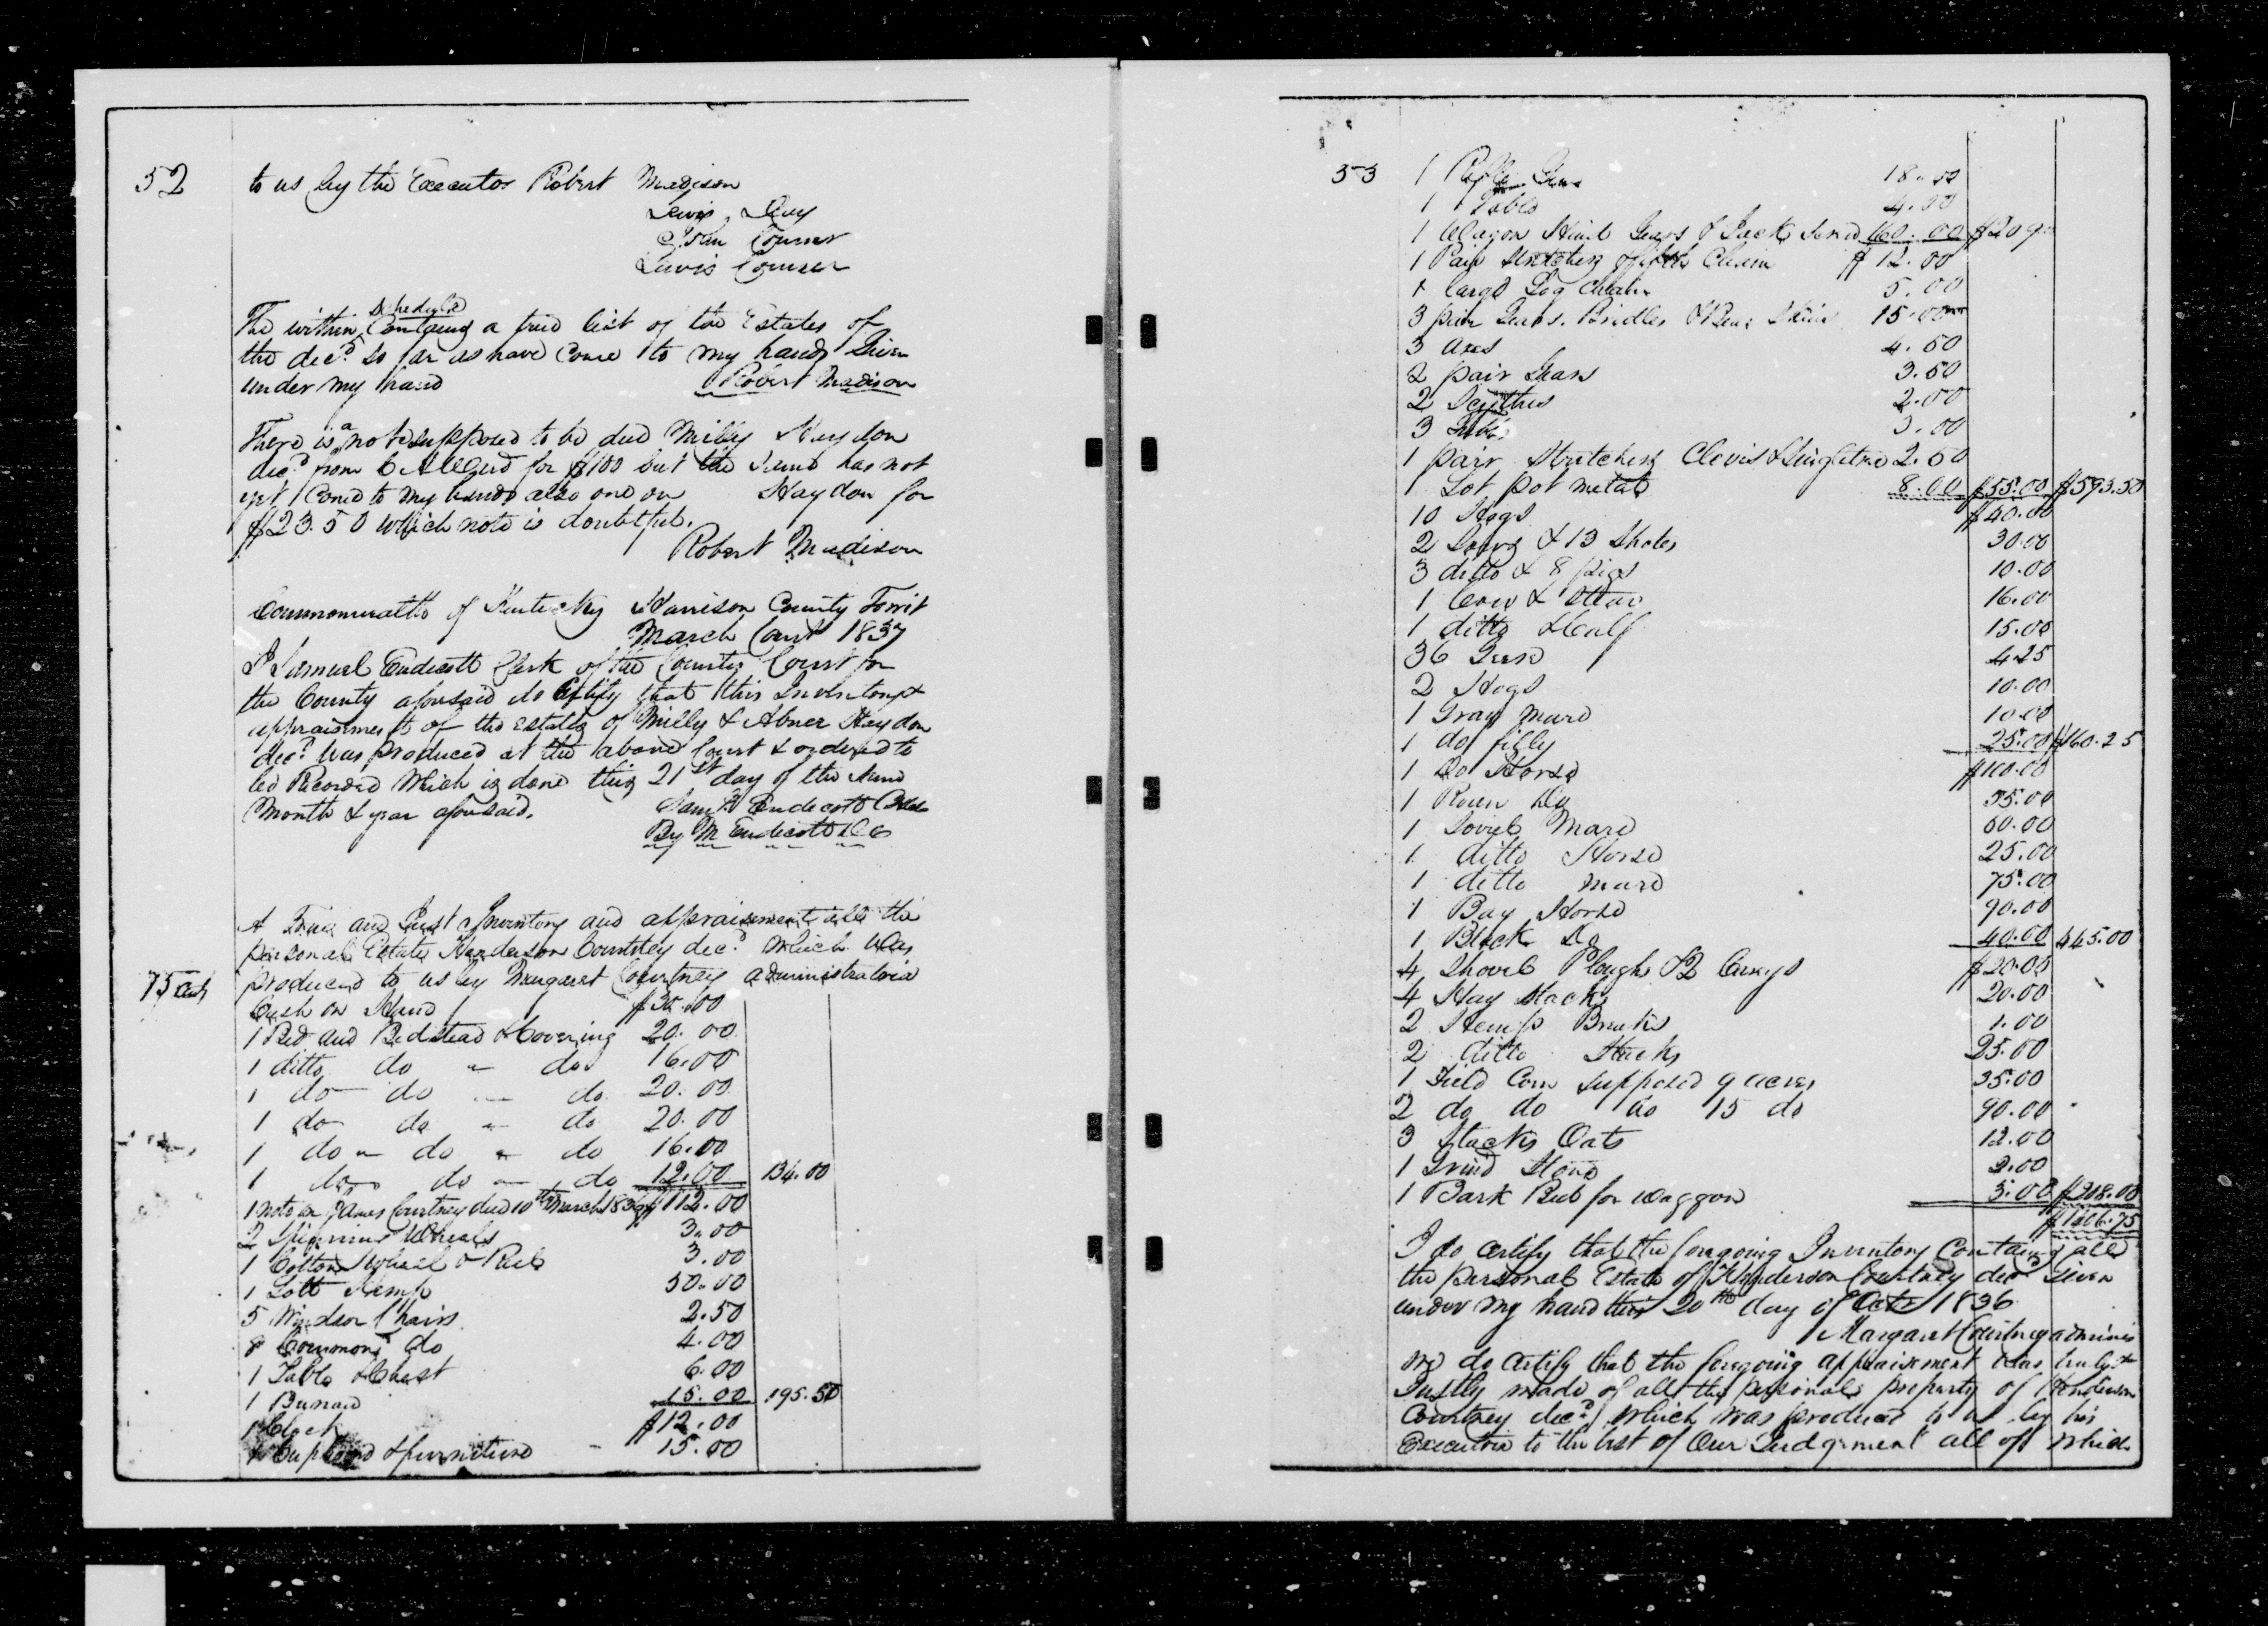 52
to us by the Executor Robert Madison
Lewis Day
John Counser
Lewis Counser
The within Schedule Contains a true list of the Estates of
the decd. so far as have Come to my hands Given
under my hand Robert Madison
There is a note supposed to be due Milly Haydon
decd from for $100 but the same has not
yet Come to my hands also one on Haydon for
$23.50 which note is doubtful.
Robert Madison
Commonwealth of Kentucky Harrison County Towit
March Court 1837
I Samuel Endicott Clerk of the County Court for
the County aforesaid do Certify that this Inventory &
appraisement of the estate of Milly & Abner Haydon
decd. was produced at the above Court & ordered to
be Recorded which is done this 21st day of the same
month & year aforesaid. Saml Endicott Clk
By M Endicott D C
A True and Just Inventory and appraisement all the
personal Estate Henderson Courtney decd. which was
75
produced to us by Margaret Courtney administratrix
Cash on Hand $30.00
1 Bed and Bedstead & Covering 20.00
1 ditto do " do 16.00
1 do do - do 20.00
1 do do " do 20.00
1 do " do " do 16.00
1 do do do 12.00 134.00
1 note on James Courtney due 10th March 183 $112.00
2 Spinning Wheels 3.00
1 Cotton Wheel & Reel 3.00
1 Lott Hemp 50.00
5 Windsor Chairs 2.50
8 Common do 4.00
1 Table & Chest 6.00
1 Bureau 15.00 195.50
1 Clock $12.00
1 Cupboard & furniture - 15.00
53
1 Rifle Gun 18.00
1 Table 4.00
1 Wagon Hind Gears & Jack Screw 160.00 $209
1 Pair Stretchers & fifth Chain $12.00
1 large Log Chain 5.00
3 pair Gears. Bridles & Bear Skin 15.00
3 axes 4.50
2 pair Gears 3.50
2 Scythes 2.00
3 3.00
1 pair Stretchers Clevis & Singletree 2.50
1 Lot pot metal 8.00 $55.00 $593.50
10 Hogs $40.00
2 Sows & 13 Shotes 30.00
3 ditto & 8 pigs 10.00
1 Cow & Steer 16.00
1 ditto & Calf 15.00
36 Geese 4.25
2 Hogs 10.00
1 Gray Mare 10.00
1 do filly 25.00 $160.25
1 Do Horse $100.00
1 Roan Do 55.00
1 Sorrel Mare 60.00
1 ditto Horse 25.00
1 ditto mare 75.00
1 Bay Horse 90.00
1 Black Do 40.00 445.00
4 Shovel Ploughs & 2 Carys $20.00
4 Hay Stacks 20.00
2 Hemp Breaks 1.00
2 ditto Stacks 25.00
1 Field Corn supposed 9 acres 35.00
2 do do do 15 do 90.00
3 Stacks Oats 12.00
1 Grind Stone 2.00
1 Bark Bed for waggon 3.00 $208.00
$1406.75
I do Certify that the foregoing Inventory Contains all
the personal Estate of Henderson Courtney decd Given
under my hand this 20th day of Octr 1836
Margaret Courtney adminis
We do Certify that the foregoing appraisement was truly &
Justly made of all the personal property of Henderson
Courtney decd. which was produced to us by his
Executrix to the best of Our Judgment all of which